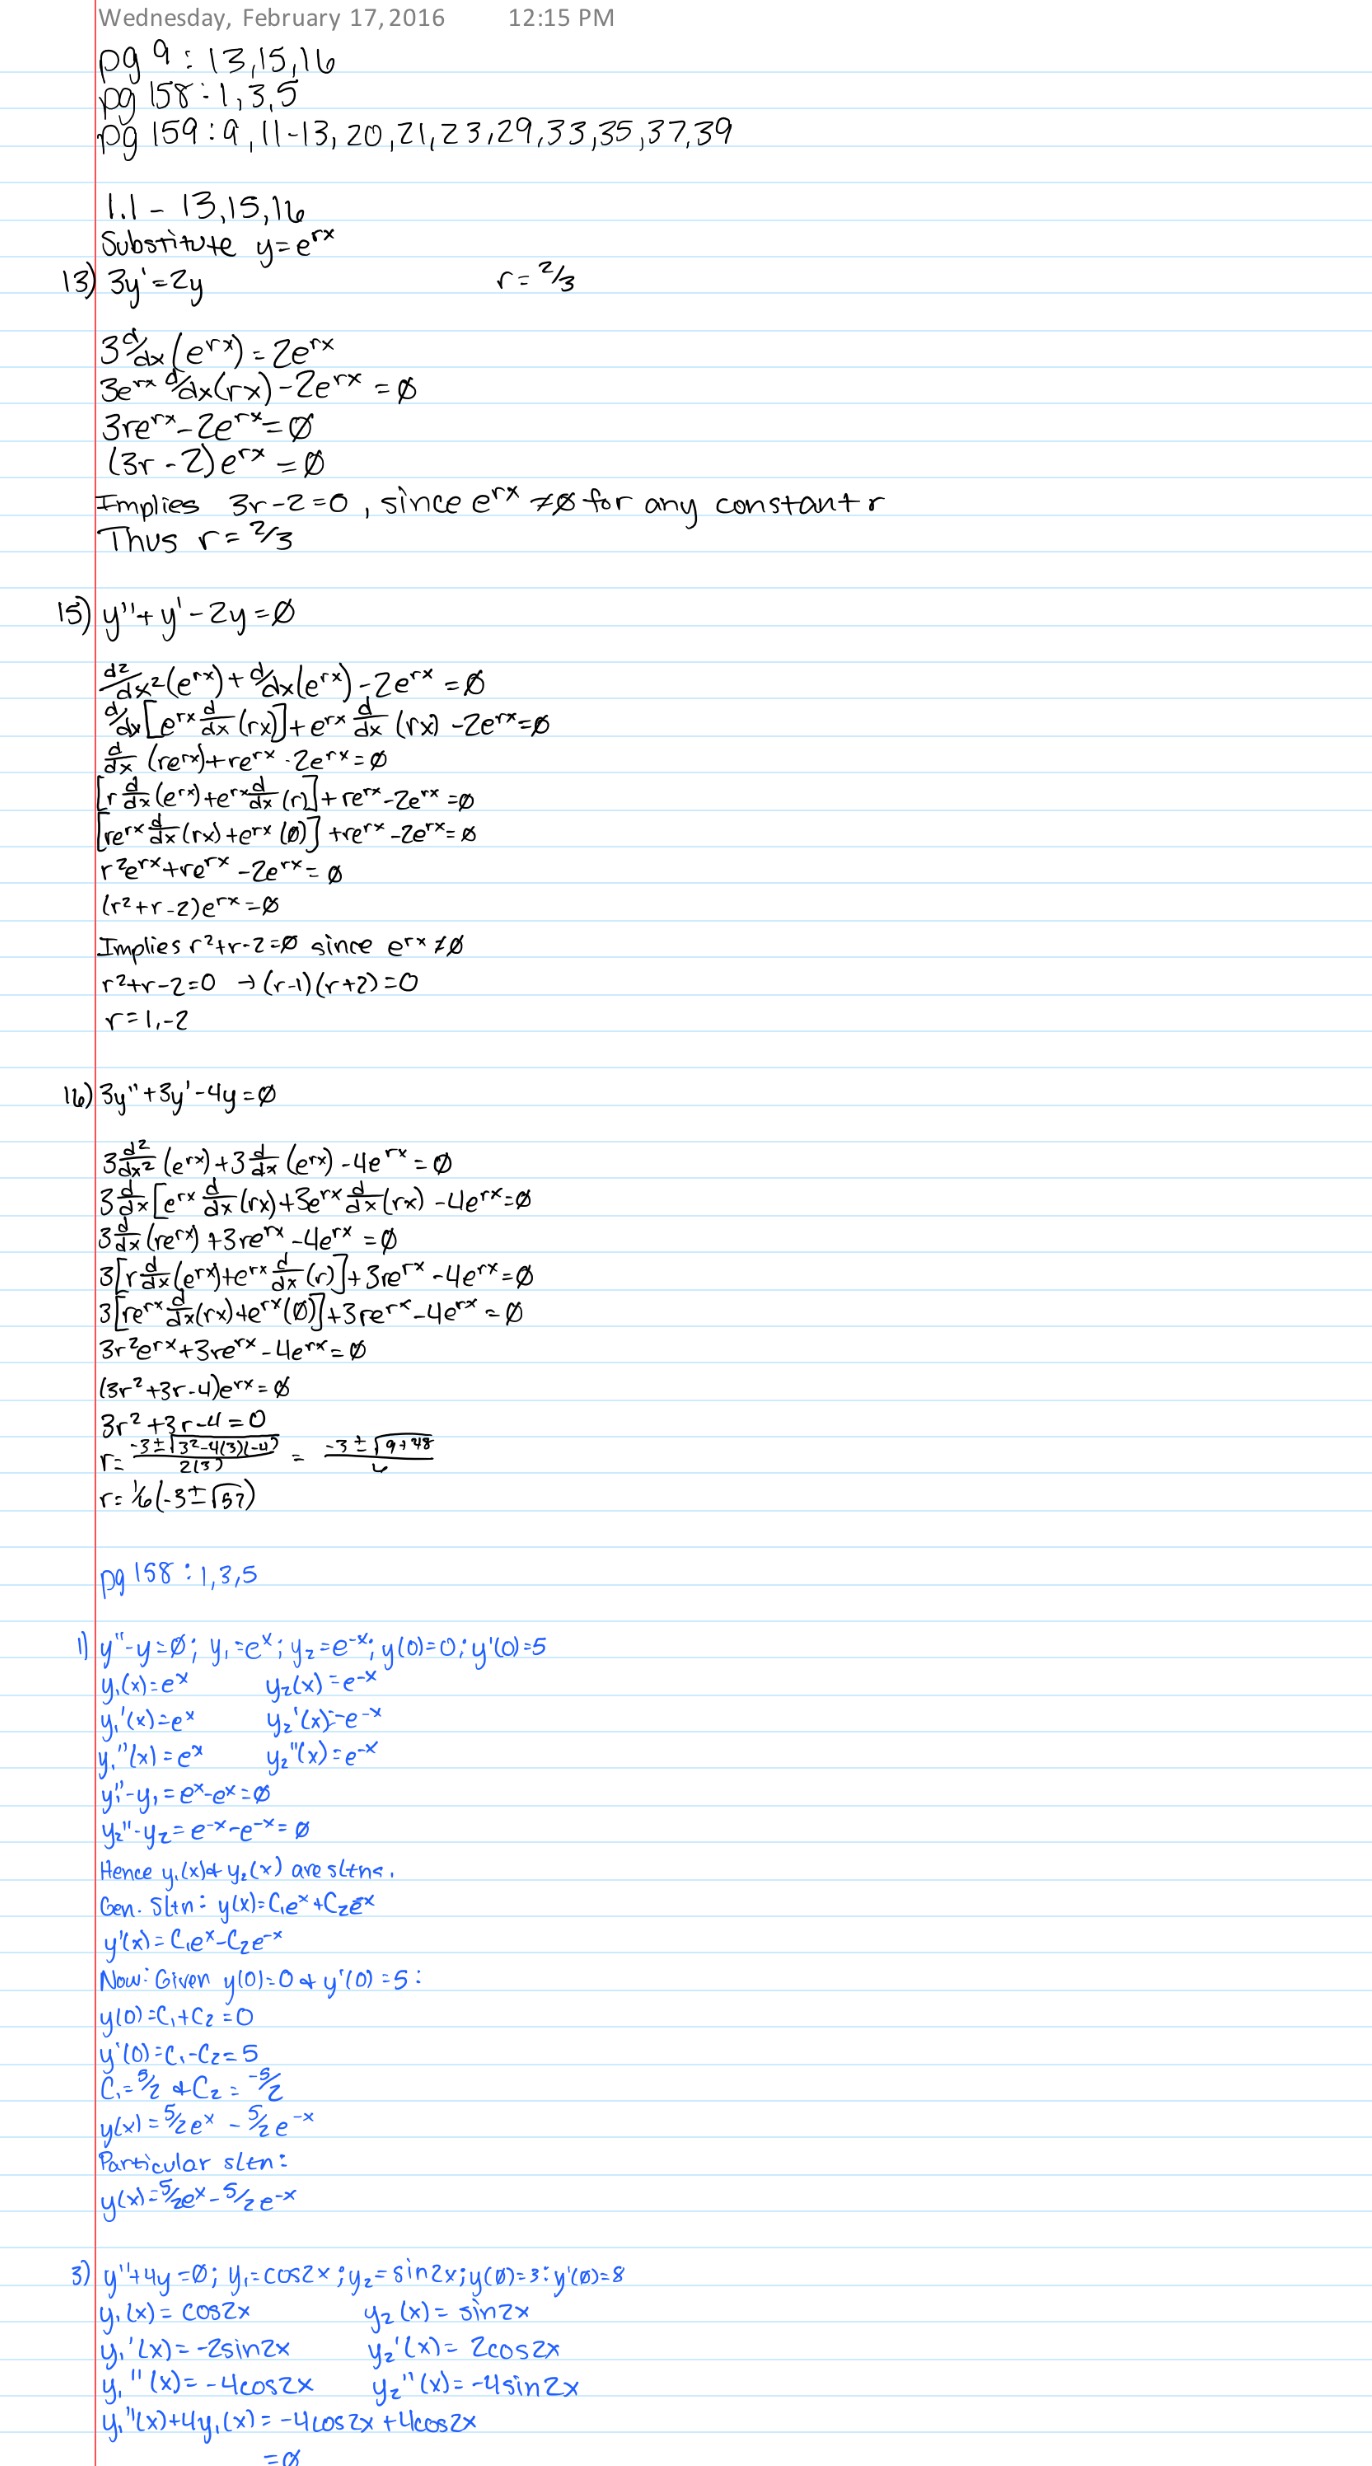 Wednesday, February 17, 2016 12:15 PM
pg 9 : 13,15,16
pg 158 : 1,3,5
pg 159 : 9, 11-13, 20,21,23,29,33,35,37,39
1.1 - 13,15,16
Substitute y=e^rx
13) 3y'=2y r = 2/3
3 d/dx (e^rx) = 2e^rx
3e^rx d/dx(rx) - 2e^rx = ∅
3re^rx - 2e^rx = ∅
(3r - 2)e^rx = ∅
Implies 3r-2=0, since e^rx ≠ ∅ for any constant r
Thus r = 2/3
15) y''+y'-2y=∅
d²/dx²(e^rx) + d/dx(e^rx) - 2e^rx = ∅
d/dx[e^rx d/dx (rx)] + e^rx d/dx (rx) - 2e^rx = ∅
d/dx (re^rx) + re^rx - 2e^rx = ∅
[r d/dx (e^rx) + e^rx d/dx (r)] + re^rx - 2e^rx = ∅
[re^rx d/dx (rx) + e^rx (∅)] + re^rx - 2e^rx = ∅
r²e^rx + re^rx - 2e^rx = ∅
(r²+r-2)e^rx = ∅
Implies r²+r-2=∅ since e^rx ≠ ∅
r²+r-2=0 → (r-1)(r+2)=0
r=1,-2
16) 3y''+3y'-4y=∅
3 d²/dx² (e^rx) + 3 d/dx (e^rx) - 4e^rx = ∅
3 d/dx [e^rx d/dx (rx) + 3e^rx d/dx (rx) - 4e^rx = ∅
3 d/dx (re^rx) + 3re^rx - 4e^rx = ∅
3[r d/dx (e^rx) + e^rx d/dx (r)] + 3re^rx - 4e^rx = ∅
3[re^rx d/dx (rx) + e^rx(∅)] + 3re^rx - 4e^rx = ∅
3r²e^rx + 3re^rx - 4e^rx = ∅
(3r²+3r-4)e^rx = ∅
3r²+3r-4=0
r = (-3±√(3²-4(3)(-4)))/2(3) = (-3±√(9+48))/6
r = 1/6(-3±√57)
pg 158 : 1,3,5
1) y''-y=∅; y₁=e^x; y₂=e^-x; y(0)=0; y'(0)=5
y₁(x)=e^x y₂(x)=e^-x
y₁'(x)=e^x y₂'(x)=-e^-x
y₁''(x)=e^x y₂''(x)=e^-x
y₁''-y₁=e^x-e^x=∅
y₂''-y₂=e^-x-e^-x=∅
Hence y₁(x) & y₂(x) are sltns.
Gen. Sltn: y(x)=C₁e^x+C₂e^-x
y'(x)=C₁e^x-C₂e^-x
Now: Given y(0)=0 & y'(0)=5:
y(0)=C₁+C₂=0
y'(0)=C₁-C₂=5
C₁=5/2 & C₂=-5/2
y(x)=5/2e^x - 5/2e^-x
Particular sltn:
y(x)=5/2e^x - 5/2e^-x
3) y''+4y=∅; y₁=cos2x; y₂=sin2x; y(∅)=3; y'(∅)=8
y₁(x)=cos2x y₂(x)=sin2x
y₁'(x)=-2sin2x y₂'(x)=2cos2x
y₁''(x)=-4cos2x y₂''(x)=-4sin2x
y₁''(x)+4y₁(x)=-4cos2x+4cos2x
=∅